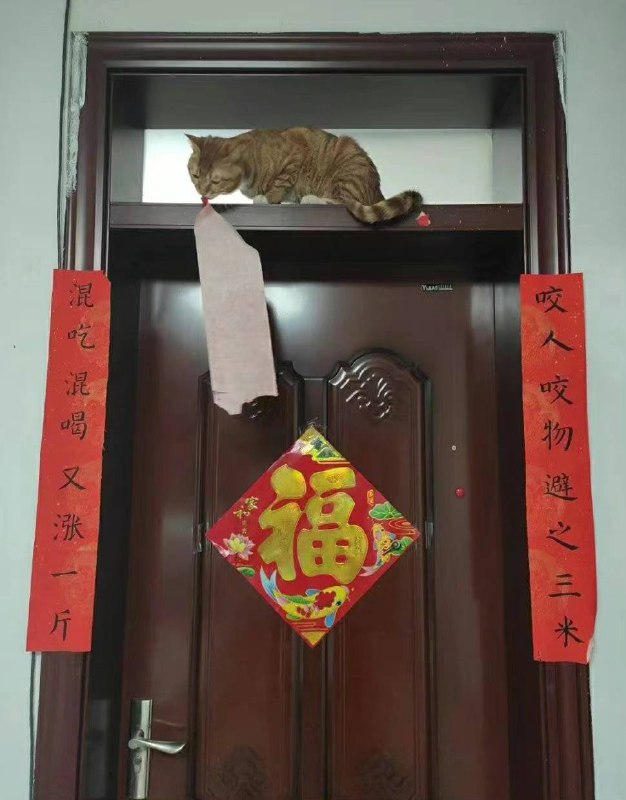 咬人咬物避之三米
混吃混喝又涨一斤
福
家和